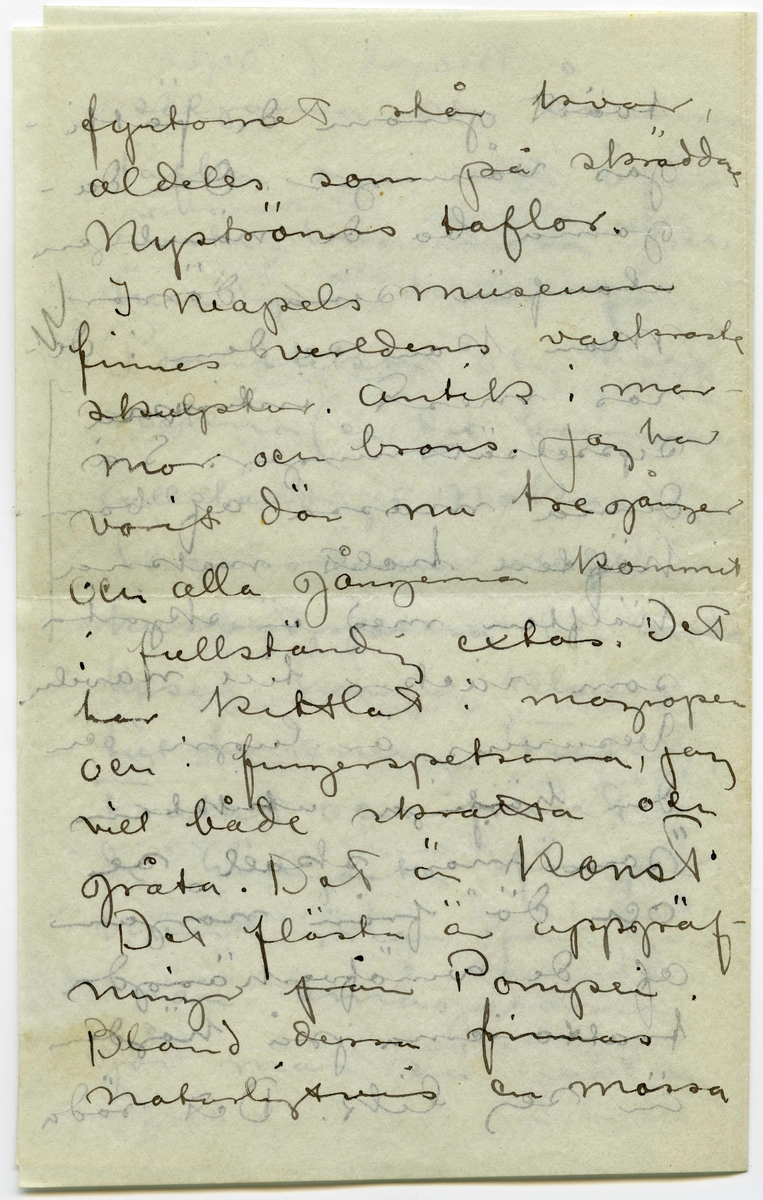 fyrtornet står kvar,
aldeles som på skräddare
Nyströms taflor.
I Neapels museum
finnes verldens vackraste
skulptur. Antik i mar-
mor och brons. Jag har
varit där nu tre gånger
och alla gångerna kommit
i fullständig extas. Det
har kittlat i maggropen
och i fingerspetsarna, jag
vill både skratta och
gråta. Det är Konst.
Det flästa är uppgräf-
ningar från Pompei.
Bland dessa finnas
naturligtvis en massa